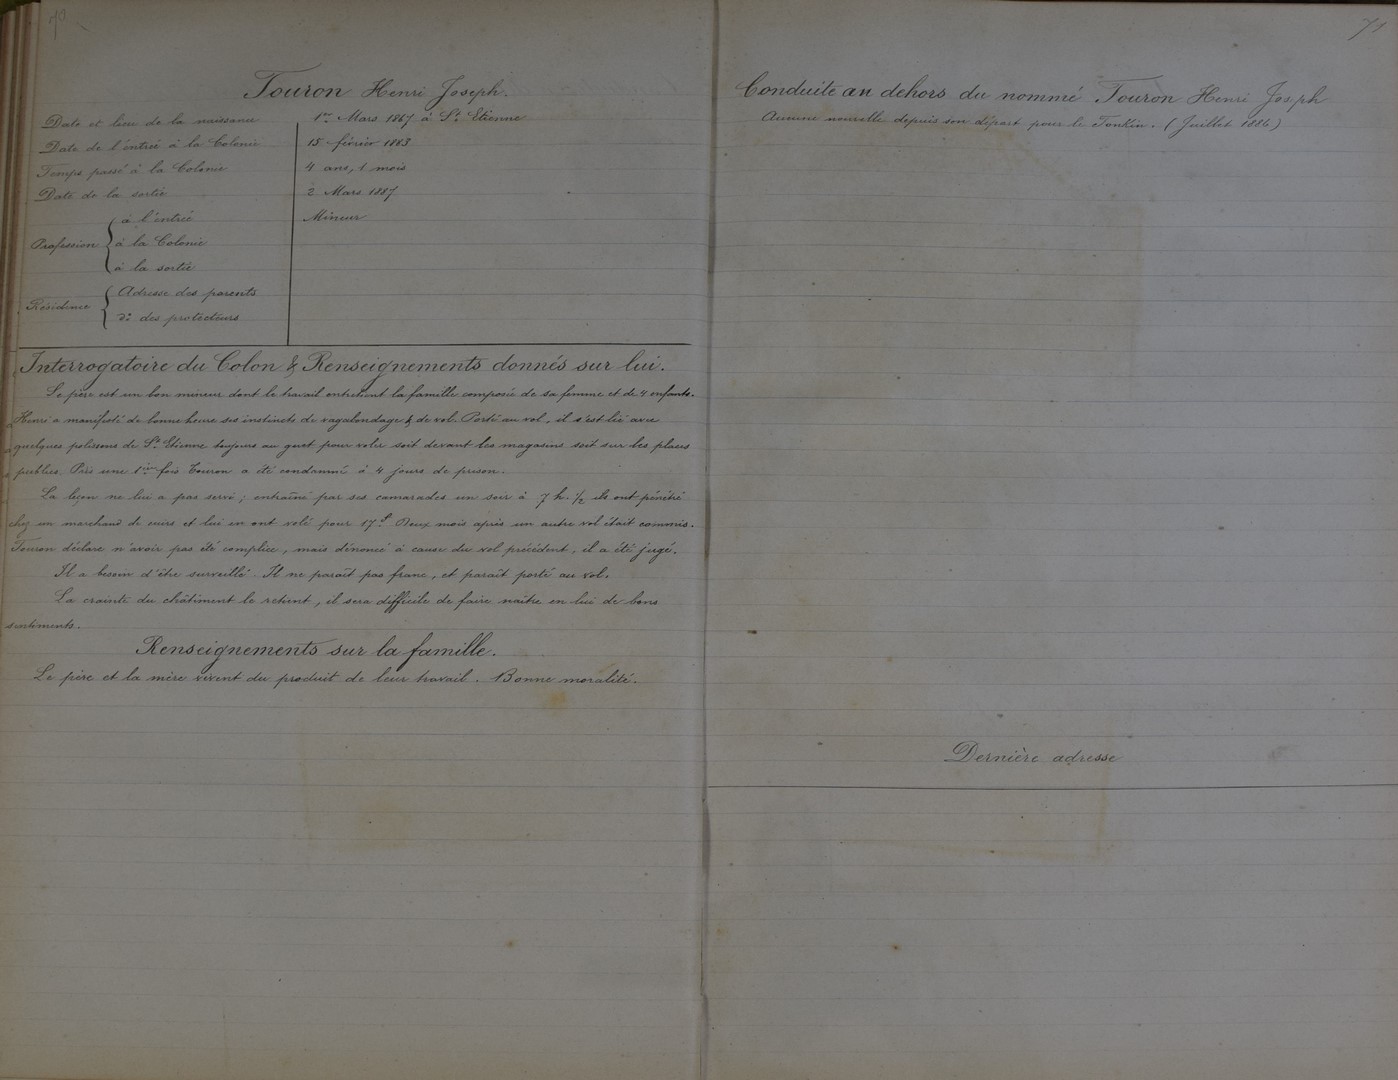 70
Touron Henri Joseph.
Date et lieu de la naissance 1er Mars 1867 à St Etienne
Date de l'entrée à la Colonie 15 février 1883
Temps passé à la Colonie 4 ans, 1 mois
Date de la sortie 2 Mars 1887
Profession à l'entrée Mineur
à la Colonie
à la sortie
Résidence Adresse des parents
do des protecteurs
Interrogatoire du Colon & Renseignements donnés sur lui.
Le père est un bon mineur dont le travail entretient la famille composée de sa femme et de 4 enfants.
Henri a manifesté de bonne heure ses instincts de vagabondage & de vol. Porté au vol, il s'est lié avec
quelques polissons de St Etienne toujours au guet pour voler soit devant les magasins soit sur les places
publics. Pris une 1ière fois Touron a été condamné à 4 jours de prison.
La leçon ne lui a pas servi ; entraîné par ses camarades un soir à 7 h. 1/2 ils ont pénétré
chez un marchand de cuirs et lui en ont volé pour 17f. Deux mois après un autre vol était commis.
Touron déclare n'avoir pas été complice, mais dénoncé à cause du vol précédent, il a été jugé.
Il a besoin d'être surveillé. Il ne paraît pas franc, et paraît porté au vol.
La crainte du châtiment le retient, il sera difficile de faire naître en lui de bons
sentiments.
Renseignements sur la famille.
Le père et la mère vivent du produit de leur travail. Bonne moralité.
71
Conduite au dehors du nommé Touron Henri Joseph
Aucune nouvelle depuis son départ pour le Tonkin. (Juillet 1886)
Dernière adresse